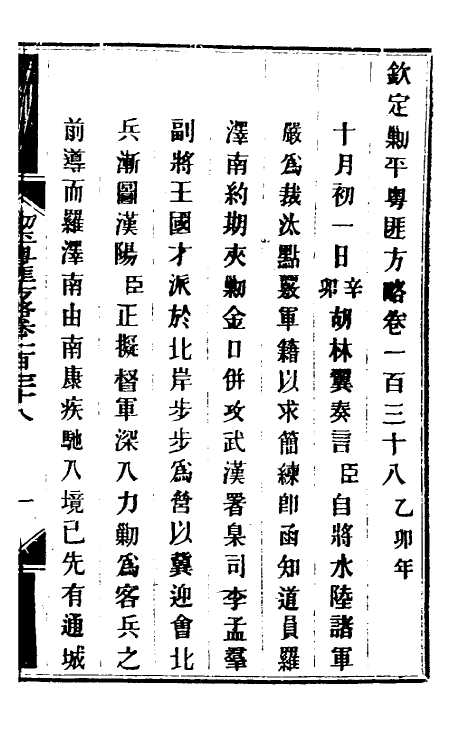 欽定勦平粵匪方略卷一百三十八 乙卯年
十月初一日辛卯胡林翼奏言臣自將水陸諸軍
嚴爲裁汰點竅軍籍以求簡練卽函知道員羅
澤南約期夾勦金口併攻武漢署臬司李孟羣
副將王國才派於北岸步步爲營以冀迎會北
兵漸圖漢陽臣正擬督軍深入力勦爲客兵之
前導而羅澤南由南康疾馳入境已先有通城
勦平粵匪方略卷一百三十八 一